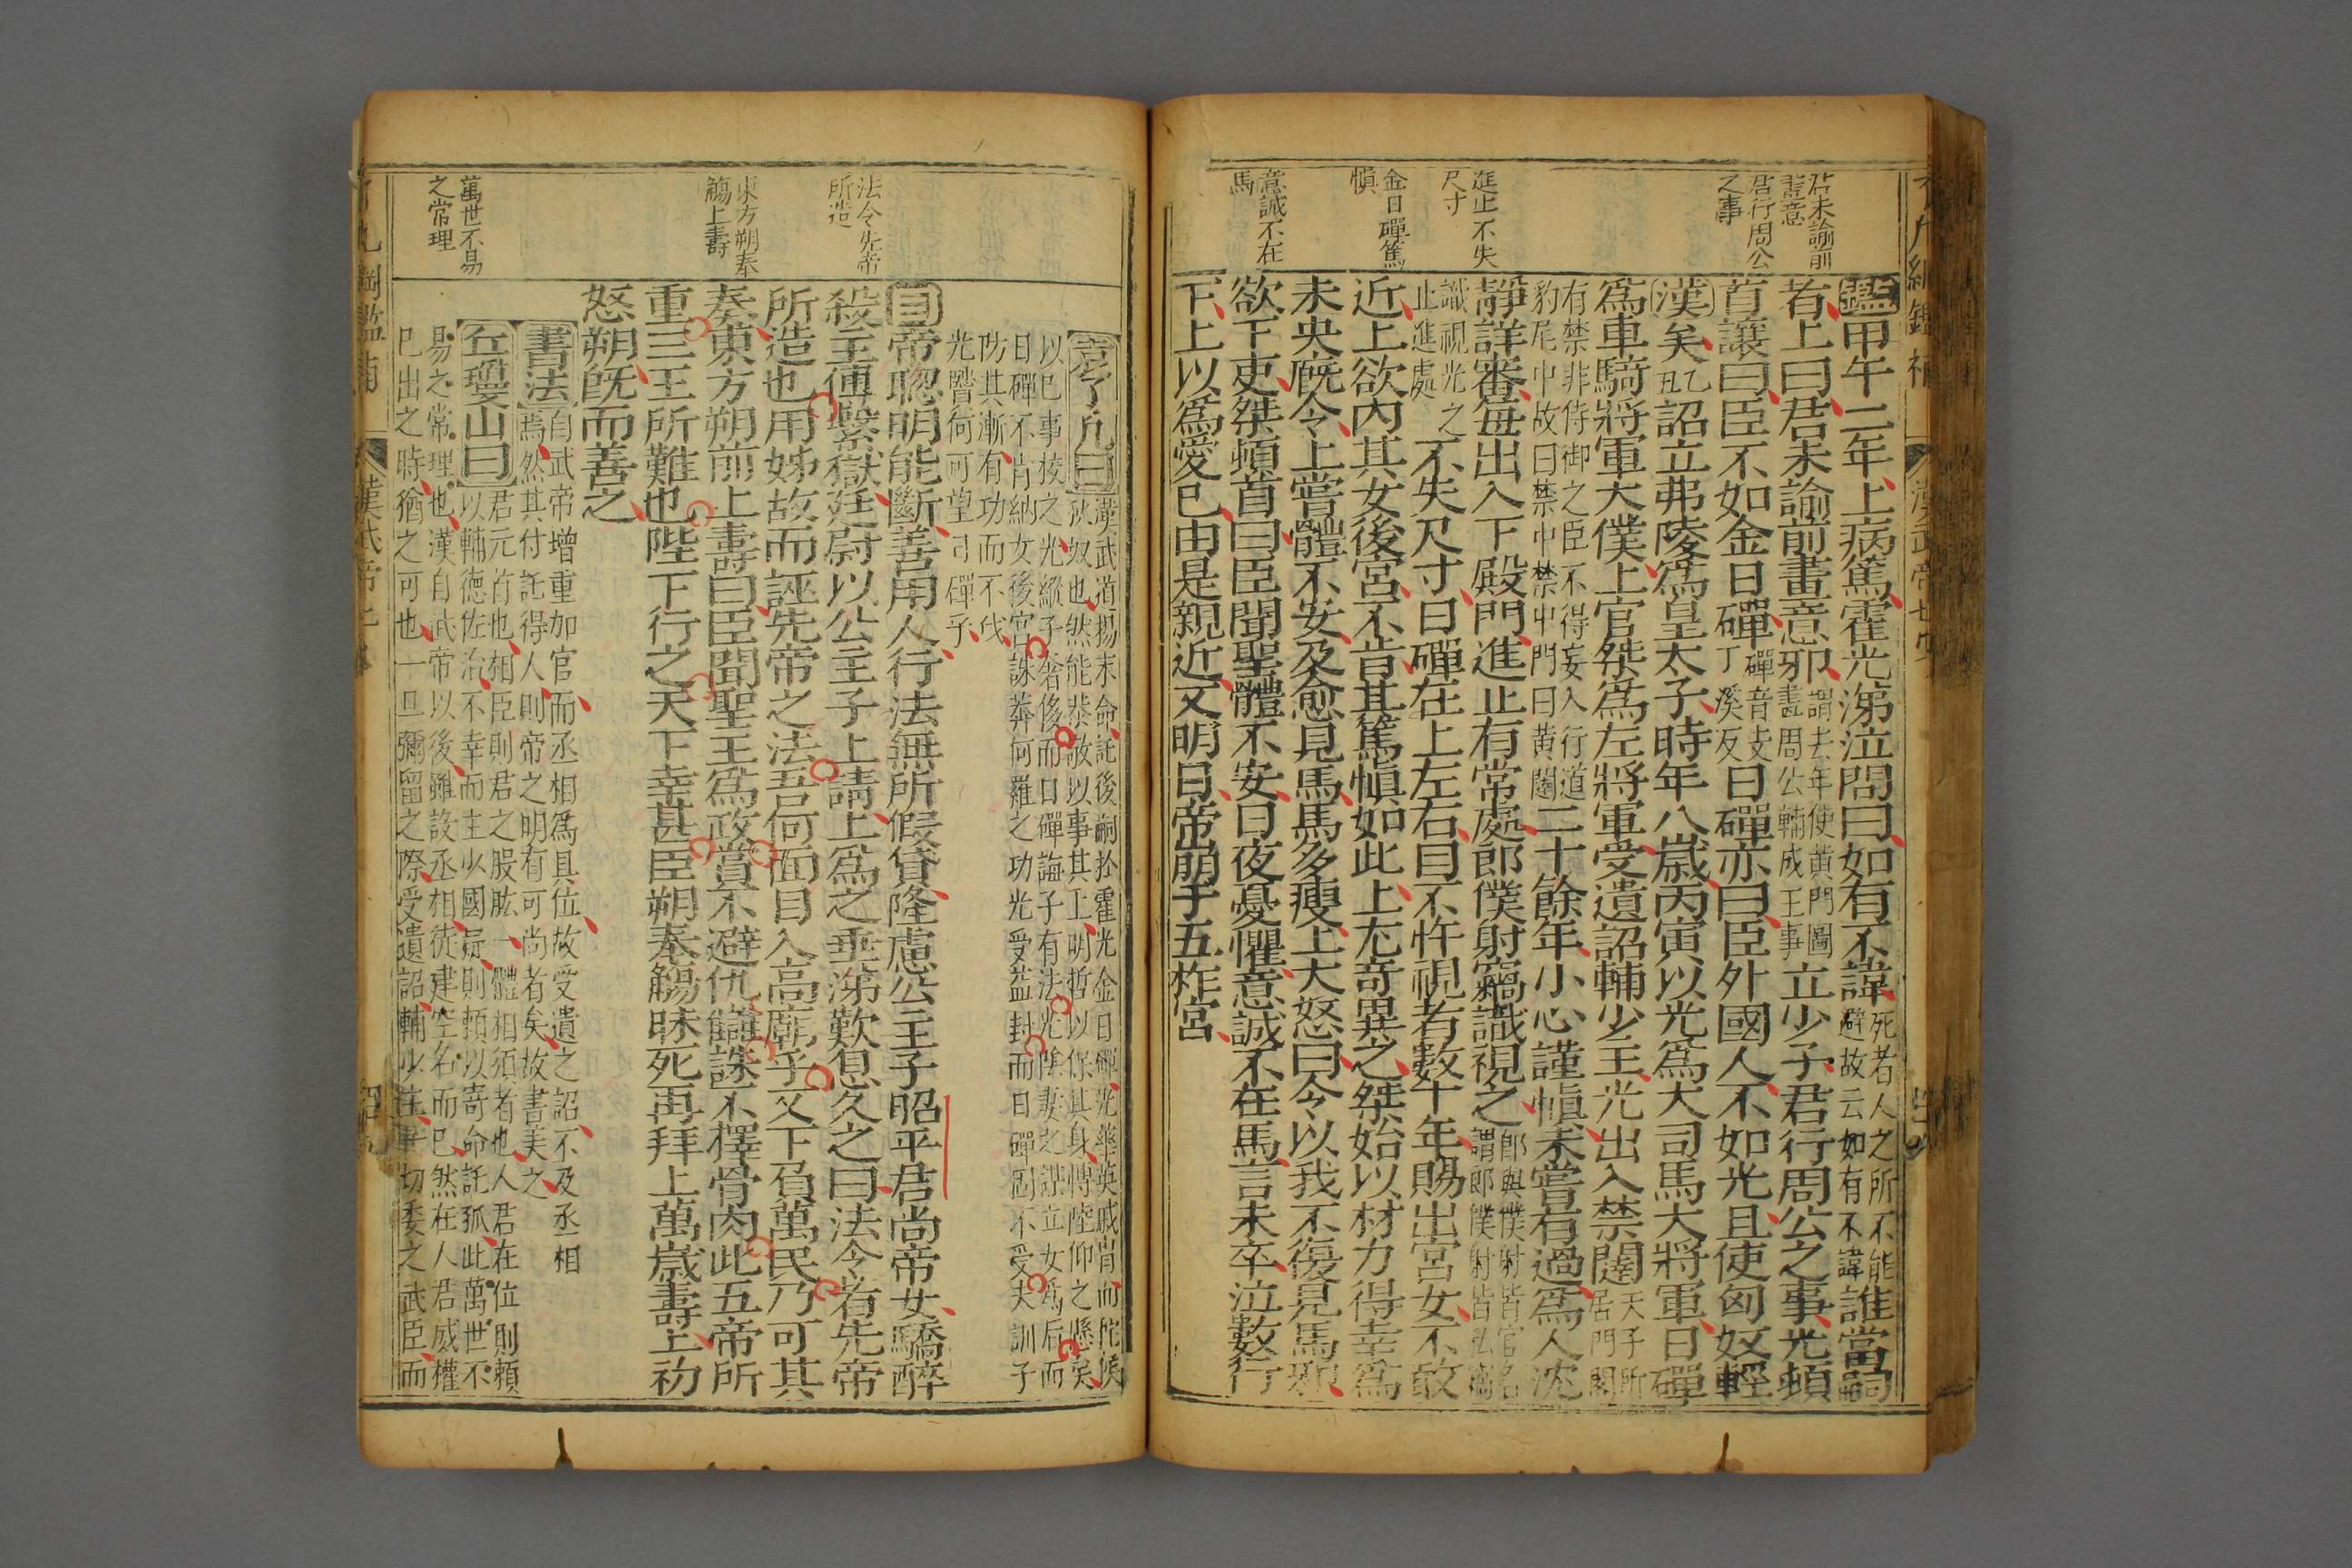 君未諭前
畫意
君行周公
之事
進止不失
尺寸
金日磾篤
慎
意誠不在
馬
鑑甲午二年上病篤霍光涕泣問曰如有不諱死者人之所不能避故云如有不諱誰當嗣
者上曰君未諭前畫意邪謂去年使黃門圖畫周公輔成王事立少子君行周公之事光頓
首讓曰臣不如金日磾磾音支丁溪反日磾亦曰臣外國人不如光且使匈奴輕
漢矣乙丑詔立弗陵爲皇太子時年八歲丙寅以光爲大司馬大將軍日磾
爲車騎將軍大僕上官桀爲左將軍受遺詔輔少主光出入禁闥天子所居門閣
有禁非侍御之臣不得妄入行道
豹尾中故曰禁中禁中門曰黃闥二十餘年小心謹慎未嘗有過爲人沈
靜詳審每出入下殿門進止有常處郎僕射竊識視之郎與僕射皆官名謂郎僕射皆私竊
識視光之
止進處不失尺寸日磾在上左右目不忤視者數十年賜出宮女不敢
近上欲內其女後宮不肯其篤慎如此上尤奇異之桀始以材力得幸爲
未央廐令上嘗體不安及愈見馬馬多瘦上大怒曰令以我不復見馬邪
欲下吏桀頓首曰臣聞聖體不安日夜憂懼意誠不在馬言未卒泣數行
下上以爲愛已由是親近又明日帝崩于五柞宮
法令先帝
所造
東方朔奉
觴上壽
萬世不易
之常理
袁了凡曰漢武道揚末命託後嗣於霍光金日磾光華英戚肖而陀候
以已事校之光縱子奢侈而日磾誨子有法光陰妻之謀立女爲后而
日磾不肯納女後宮誅莽何羅之功光受益封而日磾固不受夫訓子
防其漸有功而不伐
光瞻何可望日磾乎
目帝聰明能斷善用人行法無所假貸隆慮公主子昭平君尚帝女驕醉
殺主傅繫獄廷尉以公主子上請上爲之垂涕歎息久之曰法令者先帝
所造也用姊故而誣先帝之法吾何面目入高廟乎又下負萬民乃可其
奏東方朔前上壽曰臣聞聖王爲政賞不避仇讎誅不擇骨肉此五帝所
重三王所難也陛下行之天下幸甚臣朔奉觴昧死再拜上萬歲壽上初
怒朔旣而善之
書法自武帝增重加官而丞相爲具位故受遺之詔不及丞相
焉然其付託得人則帝之明有可尚者矣故書美之
丘瓊山曰君元首也相臣則君之股肱一體相須者也人君在位則賴
以輔德佐治不幸而主少國疑則賴以寄命託孤此萬世不
易之常理也漢自武帝以後雖設丞相徒建空名而已然在人君威權
已出之時猶之可也一旦彌留之際受遺詔輔少主一切委之武臣而